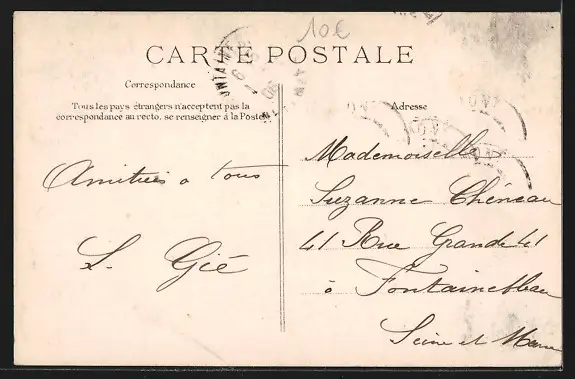 10€
CARTE POSTALE
Correspondance
Tous les pays étrangers n'acceptent pas la
correspondance au recto, se renseigner à la Poste
Amitiés a tous
L. Gié
Adresse
Mademoiselle
Suzanne Chéneau
41 Rue Grande 41
à Fontainebleau
Seine et Marne